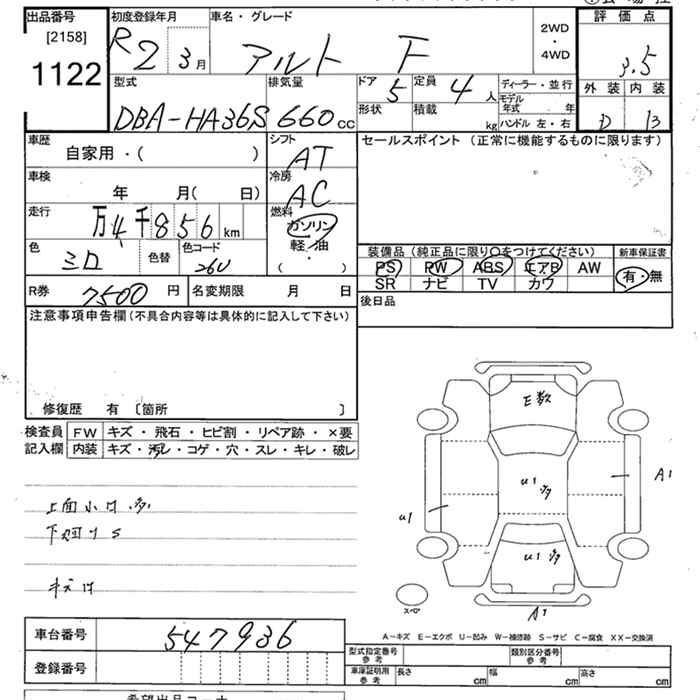 出品番号
[2158]
1122
初度登録年月
R2 3月
車名・グレード
アルト F
2WD
・
4WD
評価点
3.5
外装 内装
D B
型式
DBA-HA36S
排気量
660cc
ドア 5
定員 4人
形状
積載 kg
ディーラー・並行
モデル年式 年
ハンドル 左・右
車歴
自家用・( )
シフト
AT
セールスポイント (正常に機能するものに限ります)
車検
年 月( 日)
冷房
AC
走行
万4千856km
燃料
ガソリン
軽・油
・
( )
色
シロ
色替
色コード
26U
装備品 (純正品に限り○をつけてください)
新車保証書
PS PW ABS エアB AW
有・無
SR ナビ TV カワ
R券 7500円
名変期限 月 日
後日品
注意事項申告欄(不具合内容等は具体的に記入して下さい)
修復歴 有 〔箇所 〕
検査員
記入欄
FW キズ・飛石・ヒビ割・リペア跡・×要
内装 キズ・汚レ・コゲ・穴・スレ・キレ・破レ
E数
U1
U1
U1
A1
A1
スペア
A-キズ E-エクボ U-凹み W-補修跡 S-サビ C-腐食 XX-交換済
車台番号
547936
登録番号
型式指定番号
参考
類別区分番号
参考
車庫証明用
参考
長さ cm
幅 cm
高さ cm